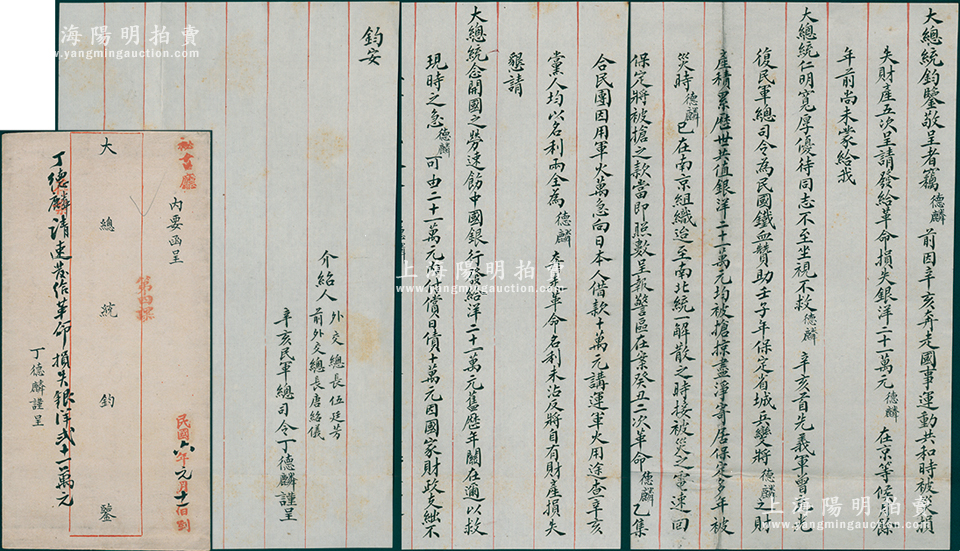 大總統鈞鑒敬呈者竊德麟前因辛亥奔走國事運動共和時被災損
失財產五次呈請發給革命損失銀洋二十一萬元德麟在京等候月餘
年前尚未蒙給我
大總統仁明寬厚優待同志不至坐視不救德麟辛亥首先義軍曾
復民軍總司令為民國鐵血贊助壬子年保定省城兵變將德麟之財
產積累歷世共值銀洋二十一萬元均被搶掠盡淨寄居保定多年被
災時德麟已在南京組織迨至南北統一解散之時接被災之電速回
保定將被搶之款當即照數呈報警區在案癸丑二次革命德麟乙集
合民團因用軍火萬急向日本人借款十萬元講運軍火用途查辛亥
黨人均以名利兩全為德麟革命名利未沾反將自有財產損失
懇請
大總統念開國之勞速飭中國銀行發給洋二十一萬元舊歷年關在邇以救
現時之急德麟可由二十一萬元內付償日債十萬元因國家財政支絀不
鈞安
介紹人 外交總長伍廷芳
前外交總長唐紹儀
辛亥民軍總司令丁德麟謹呈
秘書廳
內要函呈
第四課
大總統鈞鑒
民國六年元月十日到
丁德麟請速發給革命損失銀洋弍十一萬元
丁德麟謹呈
上海陽明拍賣
www.yangmingauction.com
上海陽明拍賣
www.yangmingauction.com
上海陽明拍賣
www.yangmingauction.com
上海陽明拍賣
www.yangmingauction.com
上海陽明拍賣
www.yangmingauction.com